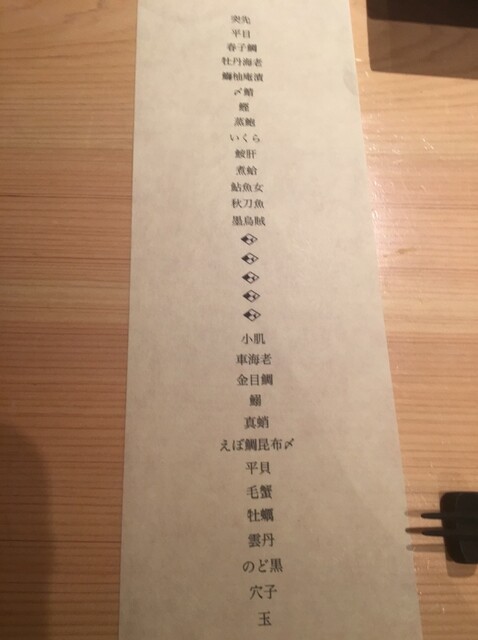 突先
平目
春子鯛
牡丹海老
鰤柚庵漬
〆鯖
鰹
蒸鮑
いくら
鮟肝
煮蛤
鮎魚女
秋刀魚
墨烏賊
小肌
車海老
金目鯛
鰯
真蛸
えぼ鯛昆布〆
平貝
毛蟹
牡蠣
雲丹
のど黒
穴子
玉